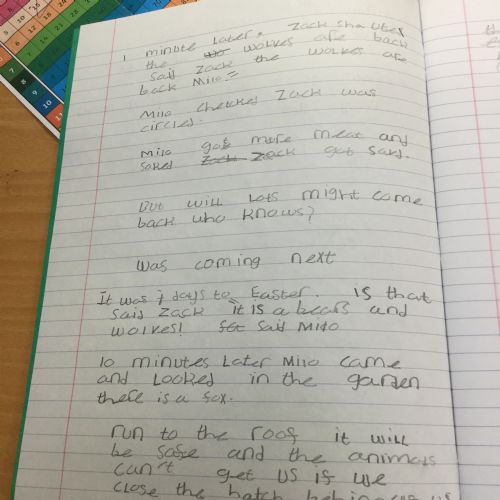 1 minute later. Zack shouted
the wolves are back
said Zack the wolves are
back Milo
Milo checked Zack was
circled.
Milo got more meat and
saked Zack got sard.
But will Lots might come
back who knows?
was coming next
It was 7 days to Easter. Is that
said Zack it is a bears and
wolves! said Milo
10 minutes later Milo came
and looked in the garden
there is a fox.
run to the roof it will
be safe and the animals
can't get us if we
close the hatch